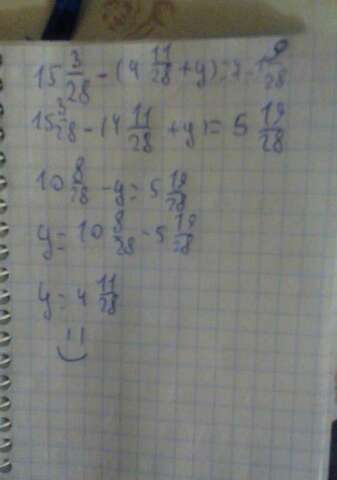 15 3/28 - (4 11/28 + y) = 7 - 1 9/28
15 3/28 - (4 11/28 + y) = 5 19/28
10 8/28 - y = 5 19/28
y = 10 8/28 - 5 19/28
y = 4 11/28